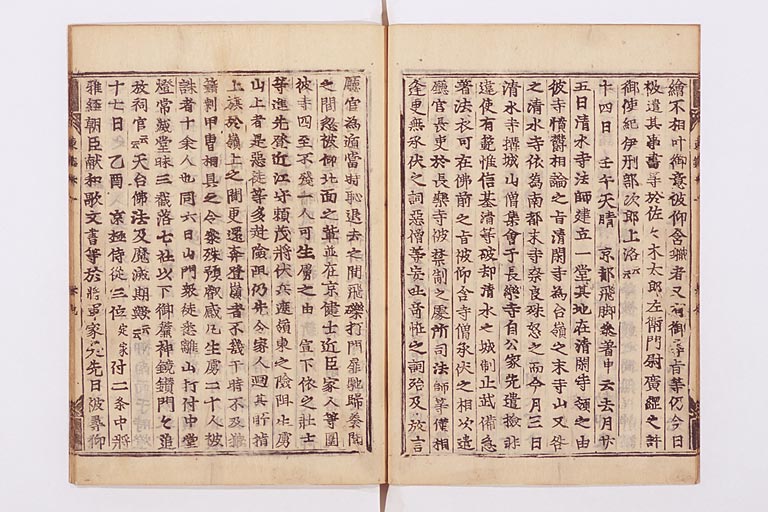 繪不相叶御意被仰舍職者又有御尋旨等仍今日
被遣其畫等於佐々木太郎左衛門尉廣經之許
御使紀伊刑部次郎上洛云云
十四日 壬午天晴 京都飛脚參著申云去月廿
五日清水寺法師建立一堂其地在清閑寺領之由
彼寺憤欝相論之旨清閑寺為台嶺之末寺山又咎
之清水寺依為南都末寺奈良殊怒之而今月三日
清水寺撰城山僧集會于長樂寺自公家先遣撿非
違使有範惟信基清等破却清水之城制止武備急
著法衣可在佛前之旨被仰含寺僧承伏之相次遣
廳官長吏於長樂寺被禁制之處所司法師等僅相
逢更無承伏之詞惡僧等妄出奇恠之詞殆及放言
廳官為遁當時恥退去之間飛礫打門扉馳歸奏聞
之間忽被仰北面之輩並在京健士近臣家人等圍
彼寺四至不殘一人可生虜之由 宣下依之壯士
等進先登近江守頼茂將伏兵遮嶺東之險阻生虜
山上者是惡徒等多赴險阻仍先令家人廻其所捎
上旗於嶺上之間更還奔登嶺者不幾于時不及發
鏃刺甲冑相具之令參殊預叡感凡生虜二十人被
誅者十余人也同六日山門衆徒悉離山打付中堂
燈常燈堂昧三截落七社以下御簾神鏡鑽門々追
放祠官云云天台佛法及魔滅期歟云云
十七日 乙酉 京極侍從三位定家付二条中將
雅經朝臣獻和歌文書等於將軍家是先日被尋仰